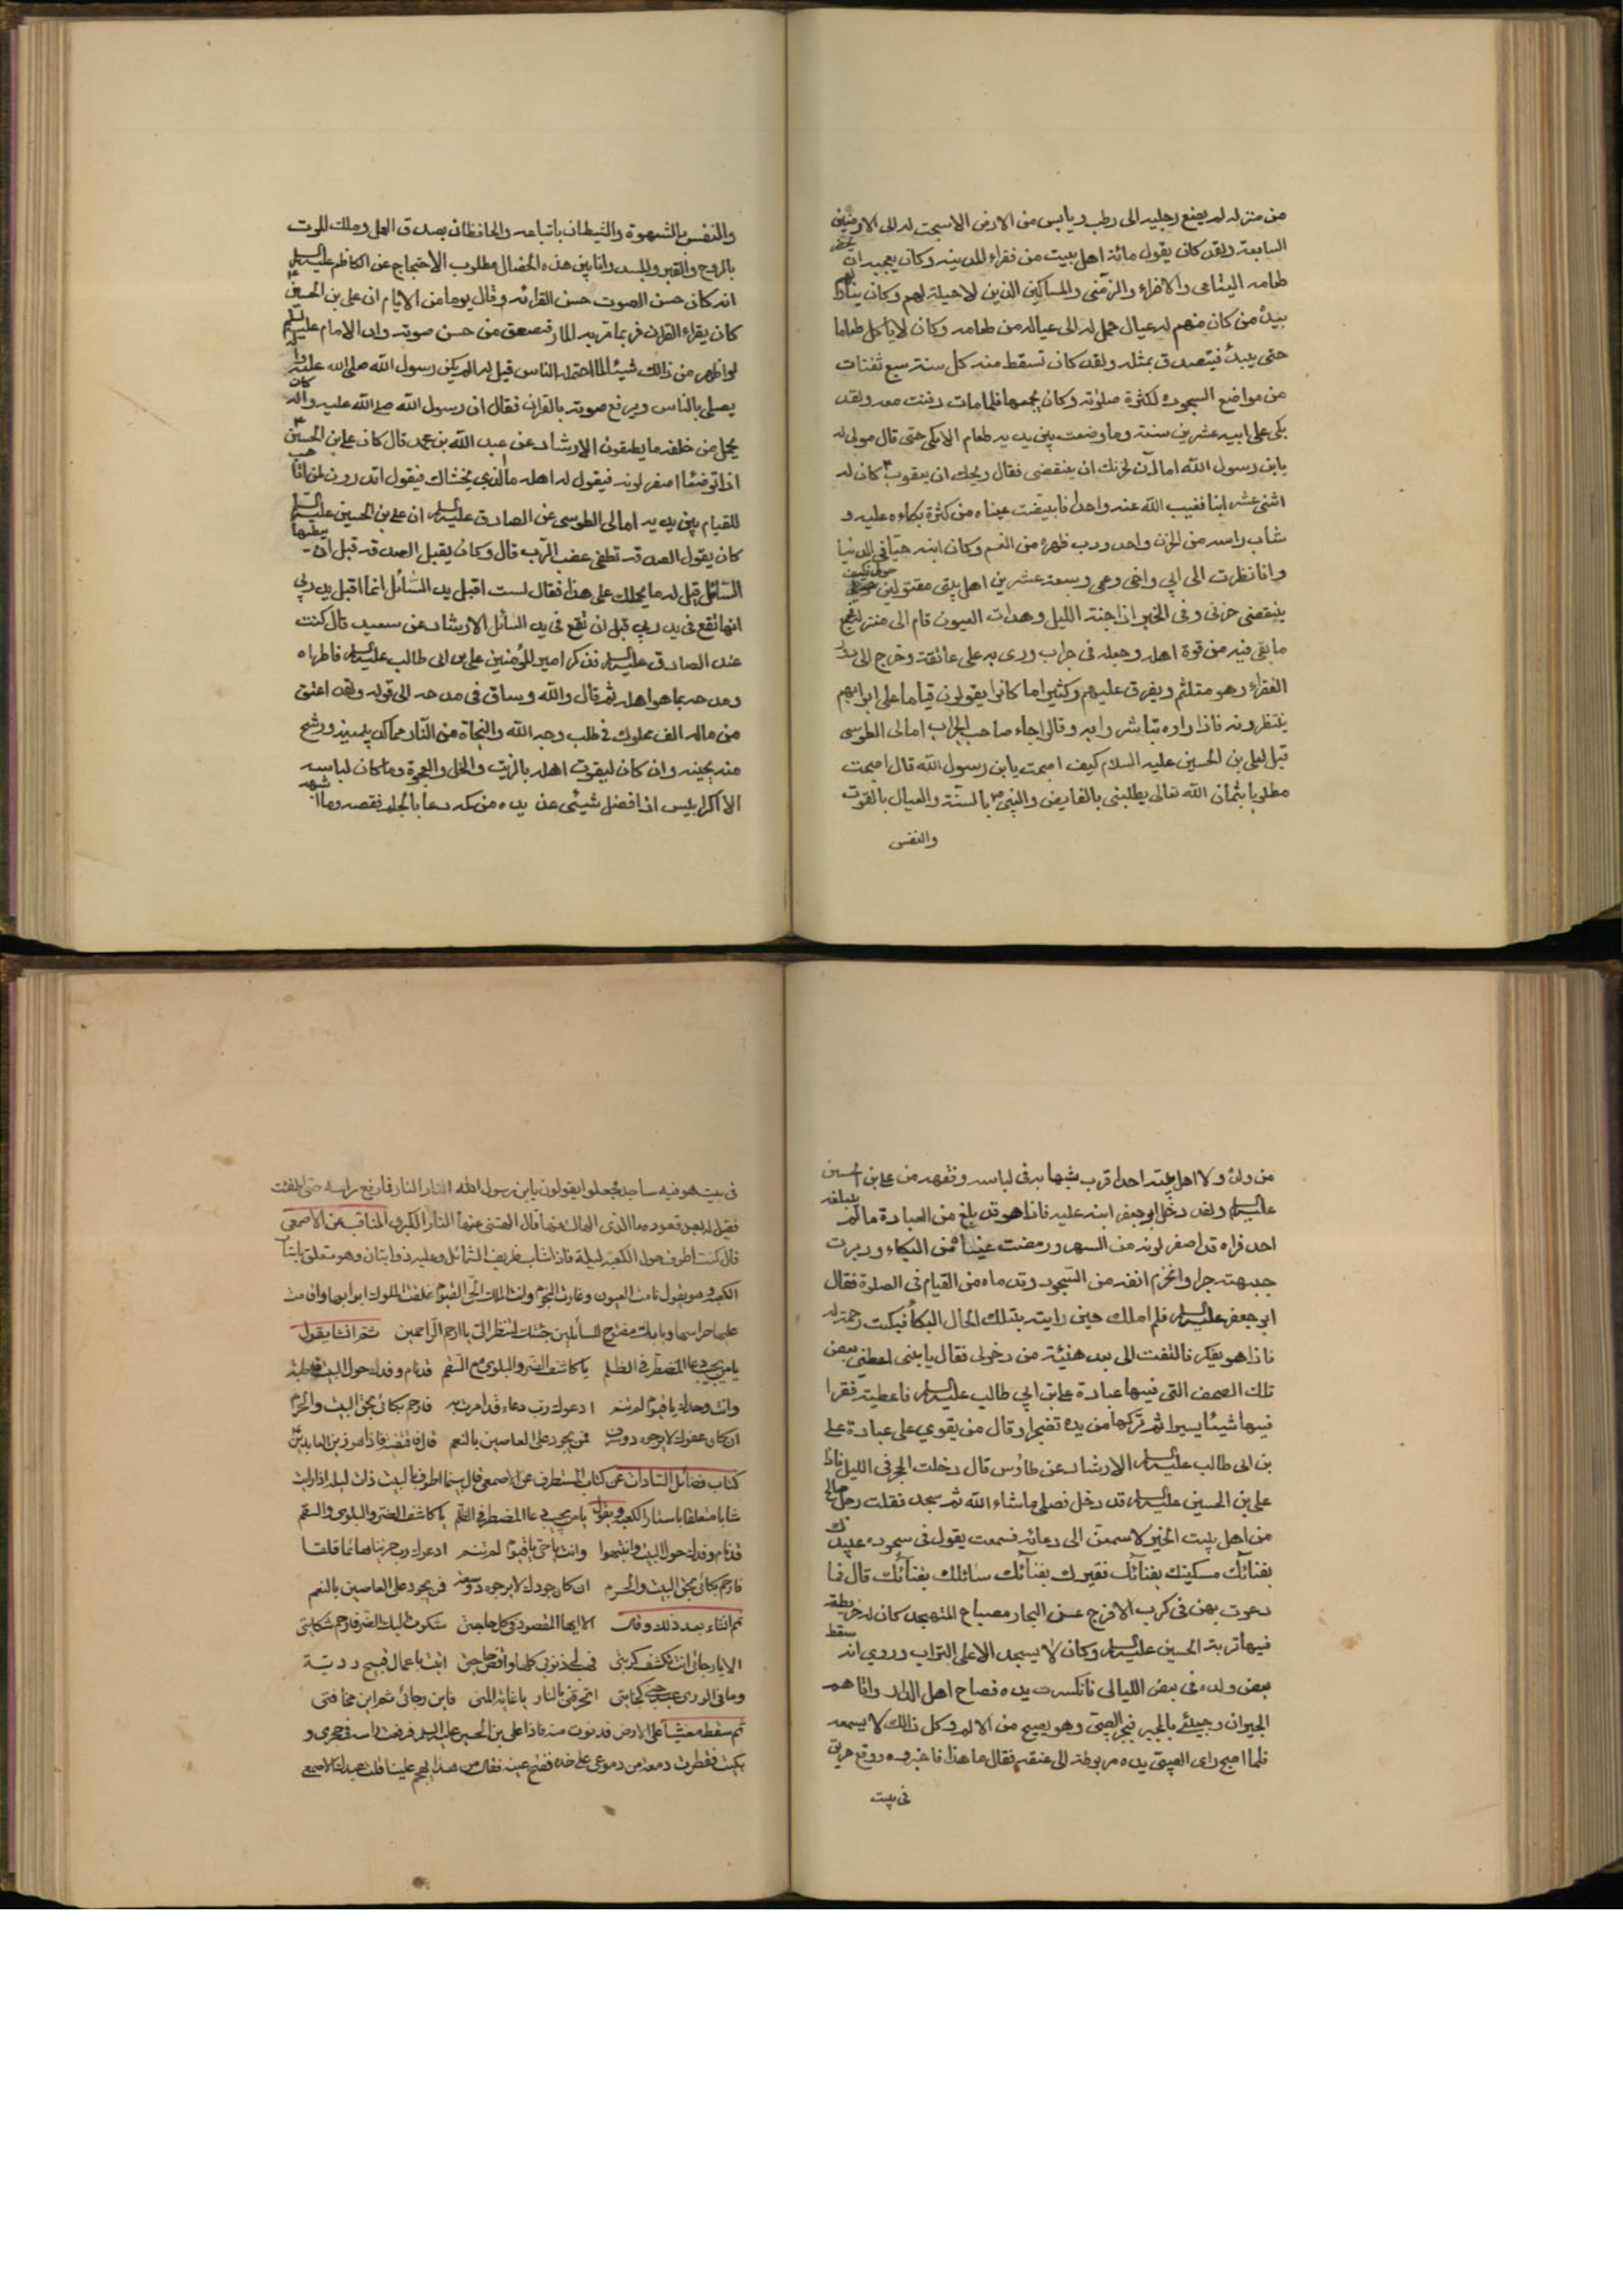 من منزله لم يضع رجليه الى رطب ويابس من الارض الا سبحت له الى الارضين
السابعة ولقد كان يقول مائة اهل بيت من فقراء المدينة وكان يعجبه ان يحضر
طعامه اليتامى والاضراء والزمنى والمساكين الذين لا حيلة لهم وكان يناولهم
بيده من كان منهم له عيال حمل له الى عياله من طعامه وكان لا ياكل طعاما
حتى يبدء فيتصدق بمثله ولقد كان تسقط منه كل سنة سبع ثفنات
من مواضع السجود لكثرة صلوته وكان يجمعها فلما مات دفنت معه ولقد
بكى على ابيه عشرين سنة وما وضعت بين يديه طعام الا بكى حتى قال مولى له
يابن رسول الله اما آن لحزنك ان ينقضى فقال ويحك ان يعقوب كان له
اثنى عشر ابنا فغيب الله عنه واحدا فابيضت عيناه من كثرة بكاءه عليه و
شاب راسه من الحزن واحدودب ظهره من الغم وكان ابنه حيا في الدنيا
وانا نظرت الى ابي واخى وعمى وسبعة عشر من اهل بيتى مقتولين حولى فكيف
ينقضى حزنى وفى الخبر اذا جنة الليل وهدات العيون قام الى منزله فجمع
ما بقى فيه من قوة اهله وجعله فى جراب ورمى به على عاتقه وخرج الى دور
الفقراء وهو متلثم ويفرق عليهم وكثيرا ما كانوا يقولون قياما على ابوابهم
ينتظرونه فاذا راوه تباشروا به وقالوا جاء صاحب الجراب امالى الطوسى
قيل لعلى بن الحسين عليه السلام كيف اصبحت يابن رسول الله قال اصبحت
مطلوبا بثمان الله تعالى يطلبنى بالفرايض والنبى ص بالسنة والعيال بالقوت
والنفس
والنفس بالشهوة والشيطان باتباعه والحافظان بصدق العمل وملك الموت
بالروح والقبر والجسد وانا بين هذه الخصال مطلوب الاحتجاج عن الكاظم عليه السلام
انه كان حسن الصوت حسن القرائة وقال يوما من الايام ان على بن الحسين
كان يقراء القران فربما مر به المار فصعق من حسن صوته وان الامام عليه السلام
لو اظهر من ذالك شيئا لما احتمله الناس قيل له الم يكن رسول الله صلى الله عليه واله
يصلى بالناس ويرفع صوته بالقران فقال ان رسول الله صلى الله عليه واله كان
يحمل من خلفه ما يطيقون الارشاد عن عبد الله بن محمد قال كان على بن الحسين
اذا توضئا اصفر لونه فيقول له اهله ما الذي يغشاك فيقول اتدرون لمن اتاهب
للقيام بين يديه امالى الطوسى عن الصادق عليه السلام ان على بن الحسين عليه السلام
كان يقول الصدقة تطفى غضب الرب قال وكان يقبل الصدقة قبل ان يعطيها
السائل قيل له ما يحملك على هذا فقال لست اقبل يد السائل انما اقبل يد ربي
انها تقع فى يد ربي قبل ان تقع فى يد السائل الارشاد عن سعيد قال كنت
عند الصادق عليه السلام فذكر امير المؤمنين على بن ابى طالب عليه السلام فاطراه
ومدحه بما هو اهله ثم قال والله وساق فى مدحه الى قوله ولقد اعتق
من ماله الف مملوك فى طلب وجه الله والنجاة من النار مما كد بيمينه ورشح
منه بجبينه وان كان ليقوت اهله بالزيت والخل والعجوة وما كان لباسه
الا اكرابيس اذا فضل شيئى عن يده من كمه دعا بالجلم فقصه وما اشبهه
من ولده ولا اهل بيته احدا قرب شبها به فى لباسه وفقهه من على بن الحسين
عليه السلام ولقد دخل ابو جعفر ابنه عليه فاذا هو قد بلغ من العبادة ما لم يبلغه
احد فراه قد اصفر لونه من السهر ورمضت عيناه من البكاء ودبرت
جبهته جرا وانخرم انفه من السجود وقدماه من القيام فى الصلوة فقال
ابو جعفر عليه السلام فلم املك حين رايته بتلك الحال البكاء فبكت رحمة له
فاذا هو يفكر فالتفت الى بعد هنيئة من دخولى فقال يا بنى اعطنى بعض
تلك الصحف التى فيها عبادة على بن ابي طالب عليه السلام فاعطيته فقرا
فيها شيئا يسيرا ثم تركها من يده تضجرا وقال من يقوي على عبادة على
بن ابى طالب عليه السلام الارشاد عن طاوس قال دخلت الحجر فى الليل فاذا
على بن الحسين عليه السلام قد دخل فصلى ما شاء الله ثم سجد فقلت رجل صالح
من اهل بيت الخير لاسمعن الى دعائه فسمعت يقول فى سجوده عبيدك
بفنائك مسكينك بفنائك فقيرك بفنائك سائلك بفنائك قال فما
دعوت بهن فى كرب الا فرج عنى البحار مصباح المتهجد كان له خريطة
فيها تربة الحسين عليه السلام وكان لا يسجد الا على التراب وروي انه سقط
بعض ولده فى بعض الليالى فانكسرت يده فصاح اهل الدار واتاهم
الجيران وجيئى بالمجبر فجبر الصبى وهو يصيح من الالم وكل ذالك لا يسمعه
فلما اصبح راى الصبى يده مربوطة الى عنقه فقال ما هذا فاخبروه ووقع حريق
فى بيت
فى بيت هو فيه ساجد فجعلوا يقولون يابن رسول الله النار النار فما رفع راسه حتى اطفئت
فقيل له بعد قعوده ما الذى الهاك عنها قال الهتنى عنها النار الكبرى المناقب عن الاصمعى
قال كنت اطوف حول الكعبة ليلة فاذا شاب ظريف الشمائل وعليه ذوابتان وهو متعلق باستار
الكعبة وهو يقول نامت العيون وغارت النجوم وانت الملك الحى القيوم غلقت الملوك ابوابها واقامت
عليها حراسها وبابك مفتوح للسائلين جئتك لتنظر الى يا ارحم الراحمين ثم انشا يقول
يا من يجيب دعا المضطر فى الظلم يا كاشف الضر والبلوى مع السقم قد نام وفدك حول البيت قاطبة
وانت وحدك يا قيوم لم تنم ادعوك رب دعاء قد امرت به فارحم بكائى بحق البيت والحرم
ان كان عفوك لا يرجوه ذو سرف فمن يجود على العاصين بالنعم قال فاقتفيته فاذا هو زين العابدين
كتاب فضائل السادات عن كتاب المستطرف عن الاصمعى قال بينما اطوف بالبيت ذات ليلة اذ رايت
شابا متعلقا باستار الكعبة ويقول يا من يجيب دعا المضطر فى الظلم يا كاشف الضر والبلوى والسقم
قد نام وفدك حول البيت وانتبهوا وانت يا حى يا قيوم لم تنم ادعوك رب حزينا هائما قلقا
فارحم بكائى بحق البيت والحرم ان كان جودك لا يرجوه ذو سفه فمن يجود على العاصين بالنعم
ثم انشاء بعد ذلك وقال الا ايها المقصود فى كل حاجتى شكوت اليك الضر فارحم شكايتى
الا يا رجائى انت تكشف كربتى فهب لى ذنوبى كلها واقض حاجتى اتيت باعمال قباح رديئة
وما فى الورى عبد جنى كجنايتى اتحرقنى بالنار يا غاية المنى فاين رجائى ثم اين مخافتى
ثم سقط مغشيا على الارض فدنوت منه فاذا على بن الحسين عليه السلام فرفعت راسه فى حجرى و
بكيت فقطرت دمعة من دموعى على خده ففتح عينه فقال من هذا يهجم علينا قلت عبدك الاصمعى